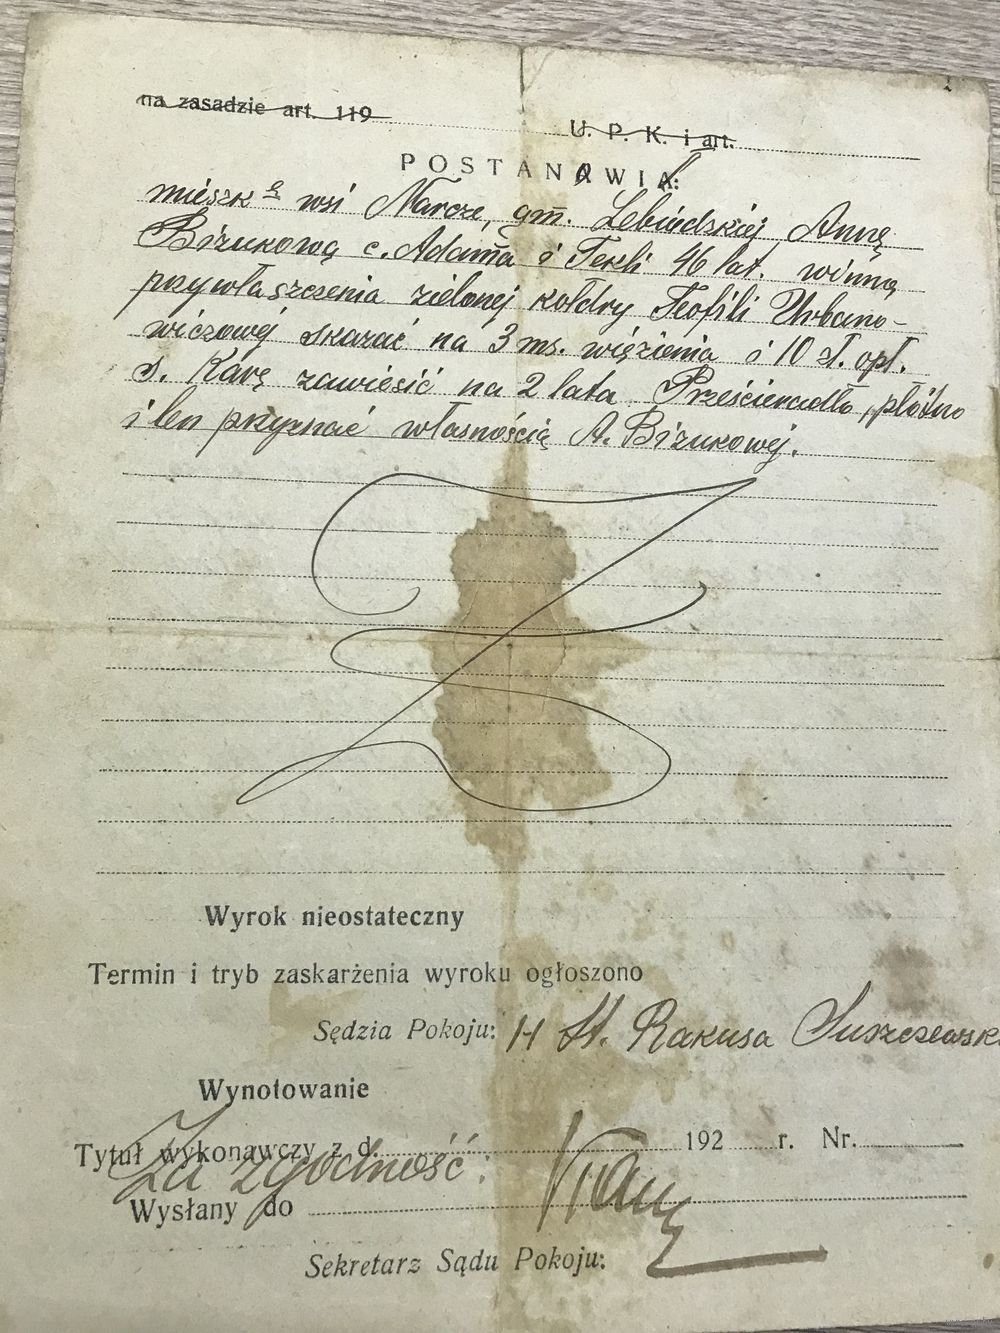 na zasadzie art. 119 U. P. K. i art.
POSTANAWIA:
mieszkę wsi Narcze, gm. Lebiedzkiej Annę
Bizukową c. Adama i Tekli 46 lat. winną
przywłaszczenia zielonej kołdry Teofili Urbano-
wiczowej skazać na 3 ms. więzienia i 10 zł. opł.
s. Karę zawiesić na 2 lata. Prześcieradło, płótno
i len przyznać własnością A. Bizukowej.
Wyrok nieostateczny
Termin i tryb zaskarżenia wyroku ogłoszono
Sędzia Pokoju: H St. Rakusa Suszczewsk
Wynotowanie
Tytuł wykonawczy z d. 192 r. Nr.
Za zgodność:
Wysłany do
Sekretarz Sądu Pokoju: